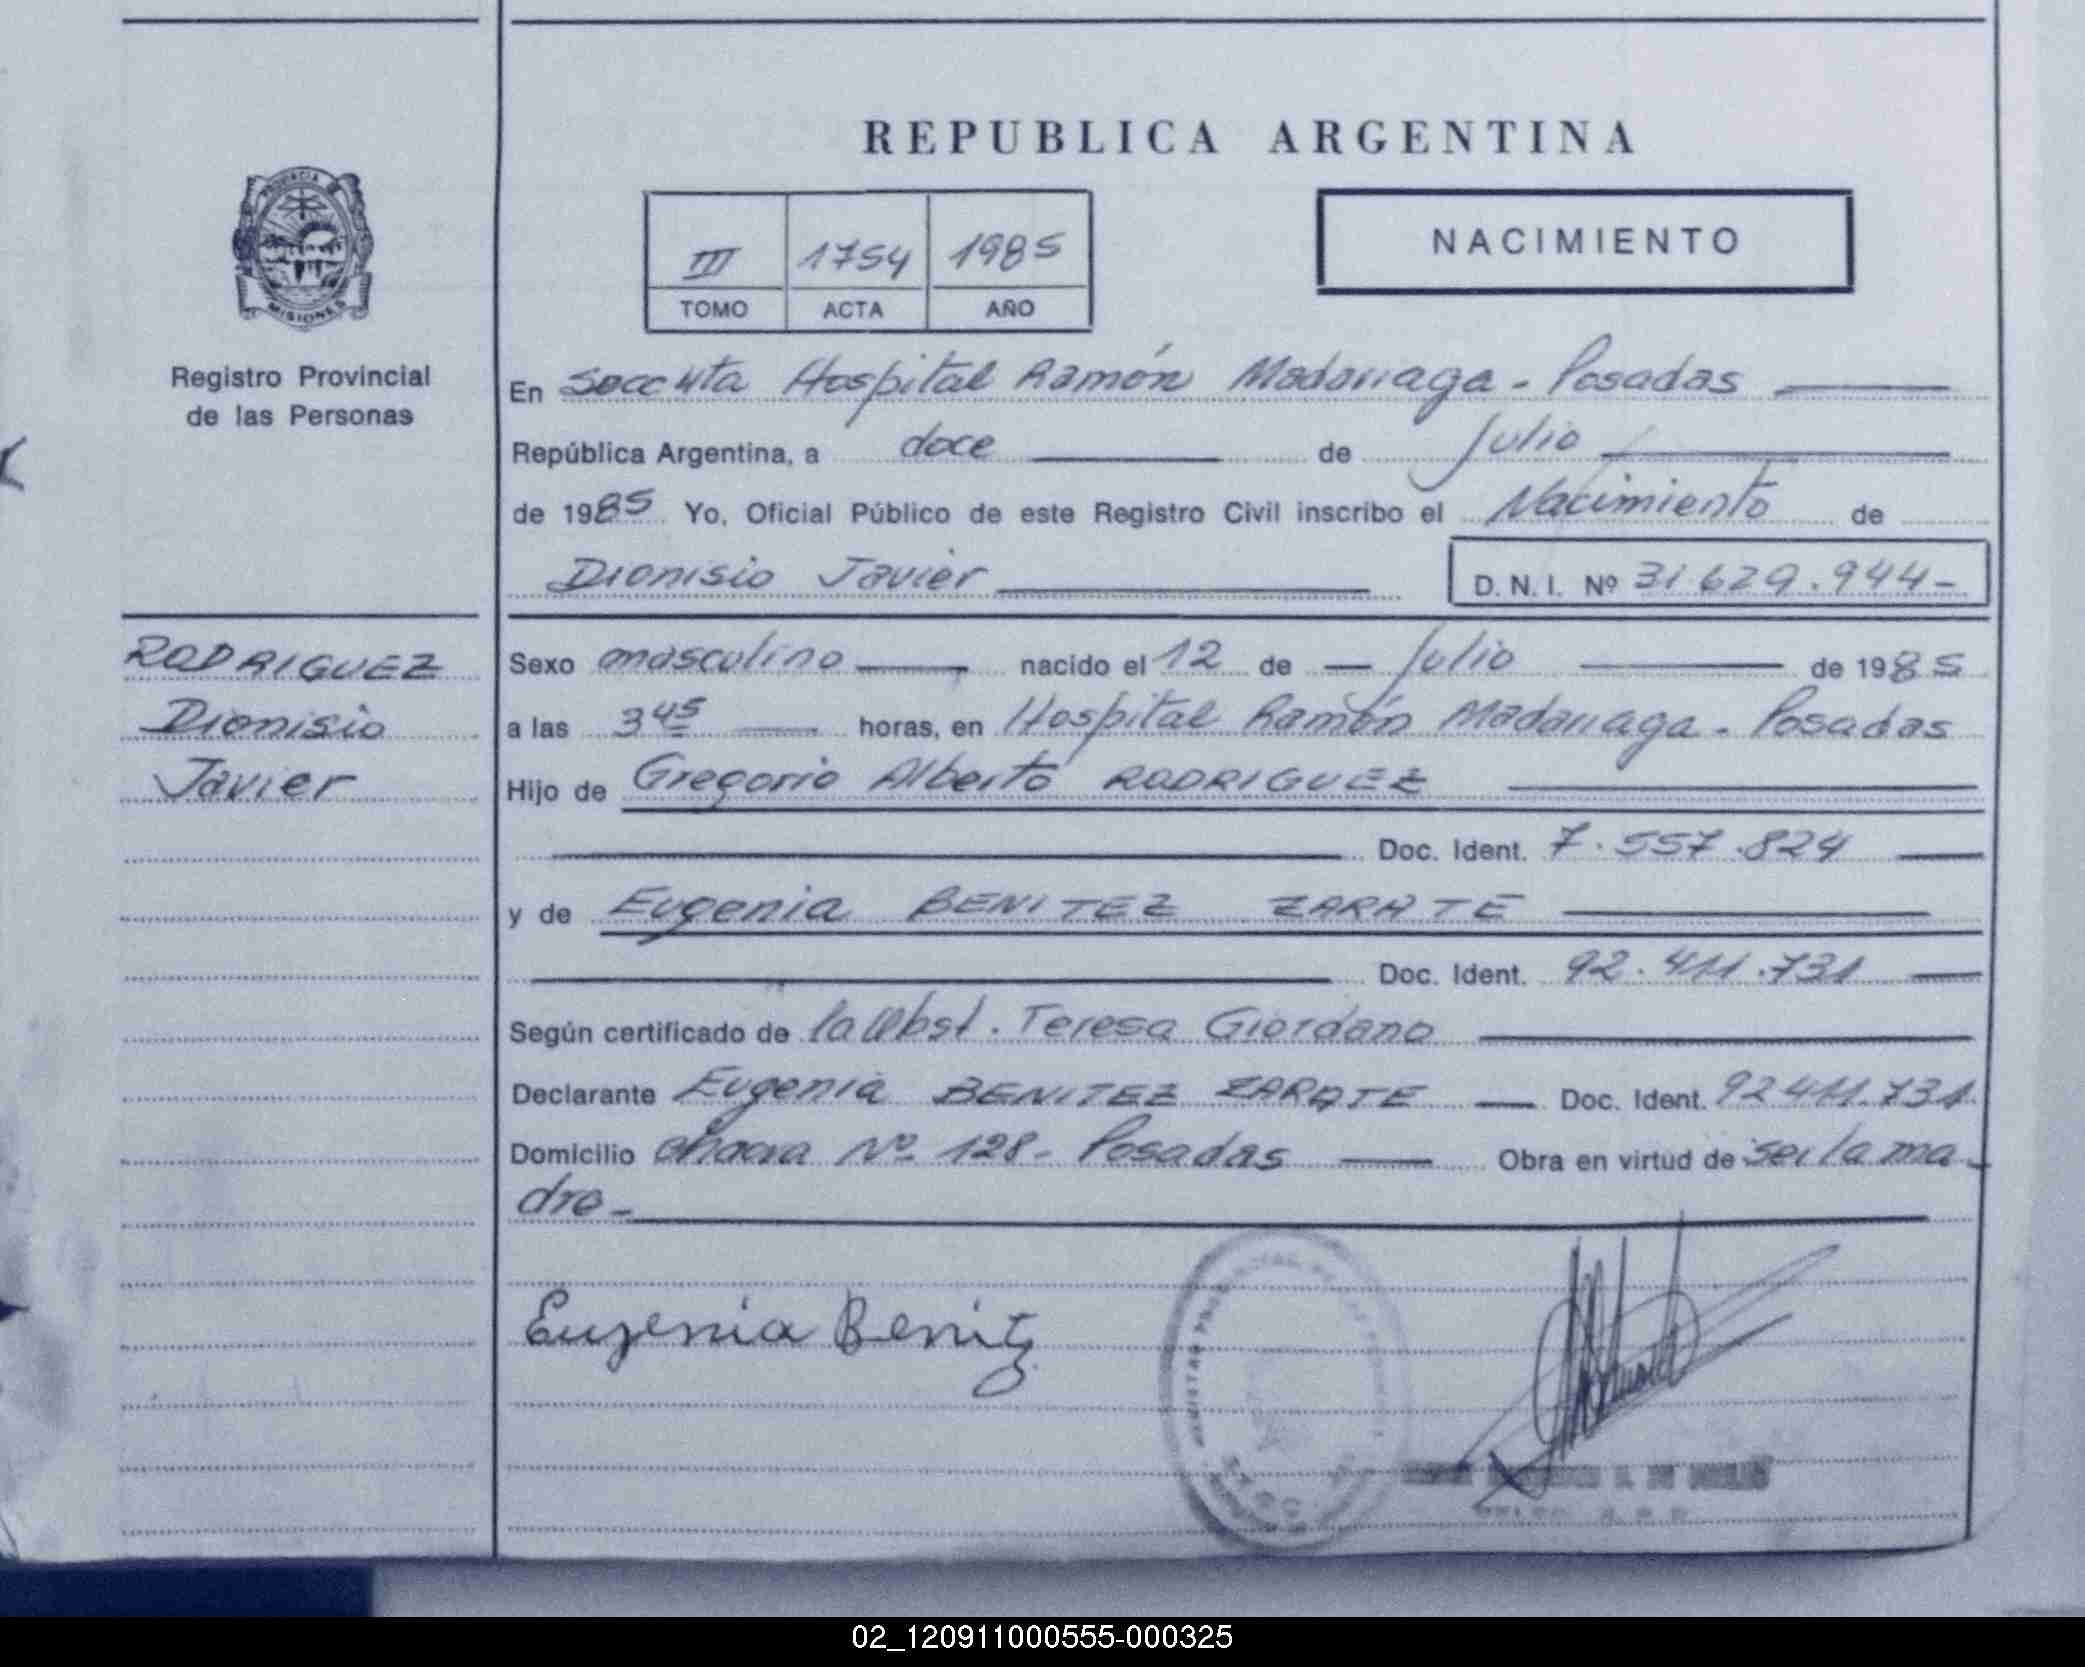 REPUBLICA ARGENTINA
PROVINCIA DE
MISIONES
Registro Provincial
de las Personas
III 1754 1985
TOMO ACTA AÑO
NACIMIENTO
En Secc 4ta Hospital Ramón Madariaga - Posadas
República Argentina, a doce de Julio
de 1985 Yo, Oficial Público de este Registro Civil inscribo el Nacimiento de
Dionisio Javier D. N. I. Nº 31.629.944-
RODRIGUEZ
Dionisio
Javier
Sexo masculino nacido el 12 de Julio de 1985
a las 3 45 horas, en Hospital Ramón Madariaga - Posadas
Hijo de Gregorio Alberto RODRIGUEZ
Doc. Ident. 7.557.824
y de Eugenia BENITEZ ZARATE
Doc. Ident. 92.411.731
Según certificado de la Obst. Teresa Giordano
Declarante Eugenia BENITEZ ZARATE Doc. Ident. 92411.731
Domicilio chacra Nº 128- Posadas Obra en virtud de ser la ma-
dre-
Eugenia Benitz
02_120911000555-000325